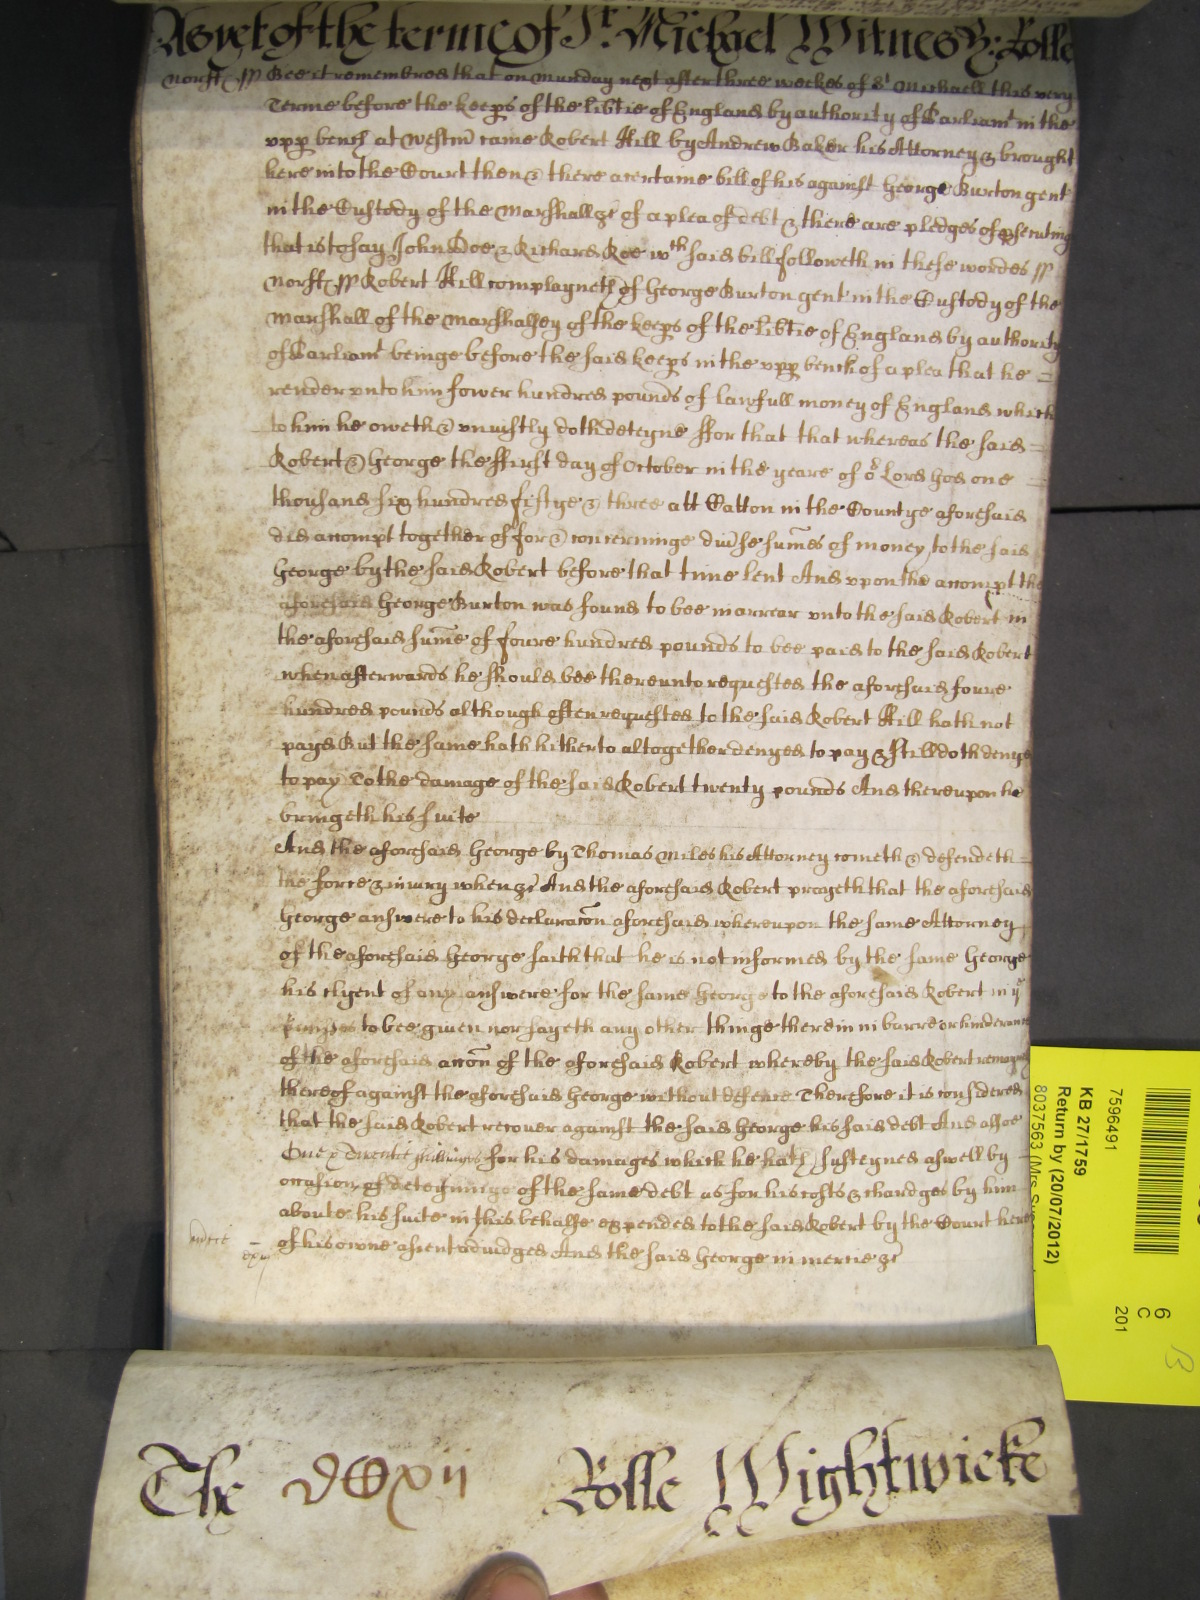 As yet of the terme of St. Michael Witnes R: Rolle
Norff ss Bee it remembred that on Munday next after three weekes of St Michaell this very
Terme before the keeps of the libtie of England by authority of Parliamt in the
upp bench at Westm came Robert Hill by Andrew Baker his Attorney & brought
here into the Court then & there a certaine bill of his against George Burton gent
in the Custody of the Marshall &c of a plea of debt & there are pledges of psecuting
that is to say John Doe & Richard Roe wch said bill followeth in these wordes ss
Norff ss Robert Hill complayneth of George Burton gent in the Custody of the
Marshall of the Marshalsey of the keeps of the libtie of England by authority
of Parliamt beinge before the said keeps in the upp bench of a plea that he
render unto him fower hundred pounds of lawfull money of England which
to him he oweth & uniustly doth deteyne ffor that that whereas the said
Robert & George the ffirst day of October in the yeare of or Lord God one
thousand six hundred fiftye & three att Catton in the Countye aforesaid
did accompt together of for & concerninge divse sumes of money to the said
George by the said Robert before that time lent And upon the accompt the
aforesaid George Burton was found to bee in arrear unto the said Robert in
the aforesaid sume of foure hundred pounds to bee paid to the said Robert
when afterwards he should bee thereunto requested the aforesaid foure
hundred pounds although often requested to the said Robert Hill hath not
payd But the same hath hitherto altogether denyed to pay & still doth denye
to pay To the damage of the said Robert twenty pounds And thereupon he
bringeth his suite
And the aforesaid George by Thomas Miles his Attorney cometh & defendeth
the force & iniury when &c And the aforesaid Robert prayeth that the aforesaid
George answere to his declaracon aforesaid whereupon the same Attorney
of the aforesaid George saith that he is not informed by the same George
his clyent of any answere for the same George to the aforesaid Robert in ye
pmisses to bee given nor sayeth any other thinge therein in barre or hinderance
of the aforesaid accon of the aforesaid Robert whereby the said Robert remayneth
thereof against the aforesaid George without defence Therefore it is considered
that the said Robert recover against the said George his said debt And allsoe
One & Twentie shillings for his damages which he hath susteyned aswell by
occasion of deteyninge of the same debt as for his costs & chardges by him
aboute his suite in this behalfe expended to the said Robert by the Court here
of his owne assent adiudged And the said George in mercie &c
The DCxii Rolle Wightwicke
7596491
KB 27/1759
Return by (20/07/2012)
6
C
201